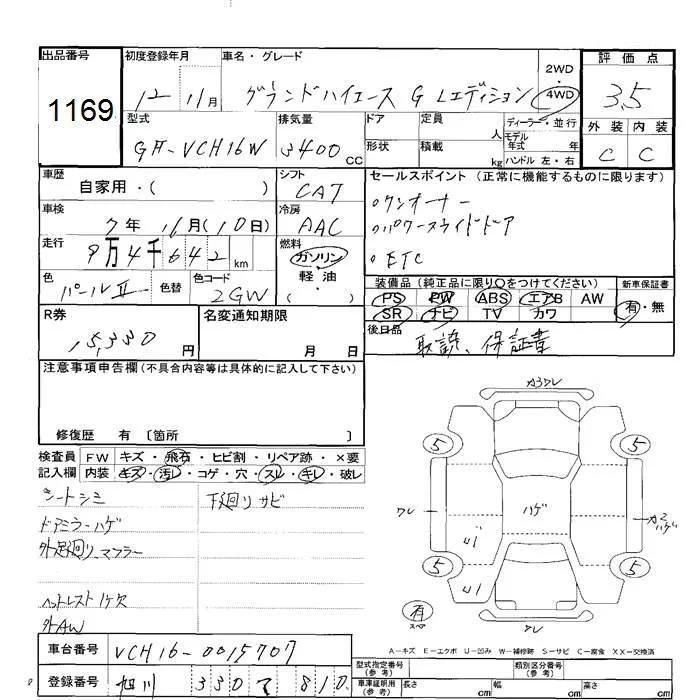 出品番号 初度登録年月 車名・グレード 2WD・4WD 評価点
1169 12 11月 グランドハイエース G Lエディション 3.5
型式 排気量 ドア 定員 人 ディーラー・並行 外装 内装
GH-VCH16W 3400 CC 形状 積載 kg モデル年式 年 ハンドル 左・右 C C
車歴 自家用・( ) シフト CAT セールスポイント (正常に機能するものに限ります)
車検 7年 11月(10日) 冷房 AAC 。ワンオーナー
走行 9万4千642 km 燃料 ガソリン・軽油・( ) 。パワースライドドア
。ETC
色 パールⅡ 色替 色コード 2GW 装備品(純正品に限り〇をつけてください) 新車保証書
PS PW ABS エアB AW 有・無
R券 名変通知期限 SR ナビ TV カワ
15,330 円 月 日 後日品 取説、保証書
注意事項申告欄(不具合内容等は具体的に記入して下さい)
修復歴 有 〔箇所 〕
検査員 FW キズ・飛石・ヒビ割・リペア跡・×要
記入欄 内装 キズ・汚レ・コゲ・穴・スレ・キレ・破レ
シートシミ 下廻りサビ
ドアミラーハゲ
外足廻り、マフラー
ヘットレスト1ケ欠
外AW
カ3ワレ
5 5
ワレ ハゲ カ2 ハゲ
U1
5 5
U1
有
スペア ワレ
A-キズ E-エクボ U-凹み W-補修跡 S-サビ C-腐食 XX-交換済
車台番号 VCH16-0015707 型式指定番号(参考) 類別区分番号(参考)
登録番号 旭川 330 て 810 車津証明用(参考) 長さ cm 幅 cm 高さ cm